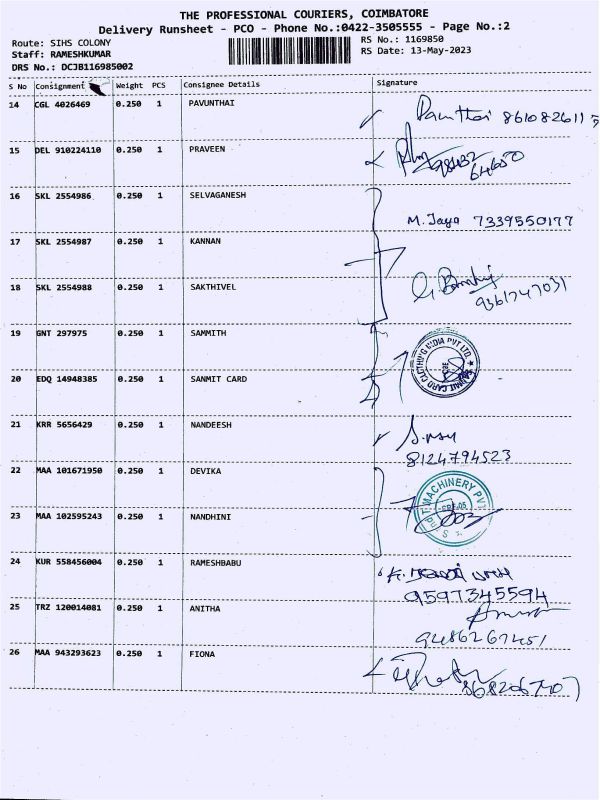 THE PROFESSIONAL COURIERS, COIMBATORE
Delivery Runsheet - PCO - Phone No.:0422-3505555 - Page No.:2
Route: SIHS COLONY RS No.: 1169850
Staff: RAMESHKUMAR RS Date: 13-May-2023
DRS No.: DCJB116985002
S No Consignment Weight PCS Consignee Details Signature
14 CGL 4026469 0.250 1 PAVUNTHAI
Pavunthai 8610826115
15 DEL 910224110 0.250 1 PRAVEEN
98432
64650
16 SKL 2554986 0.250 1 SELVAGANESH
M. Jaya 7339550177
17 SKL 2554987 0.250 1 KANNAN
18 SKL 2554988 0.250 1 SAKTHIVEL
9361747031
19 GNT 297975 0.250 1 SAMMITH
SANMIT CARD CLOTHING INDIA PVT LTD.
CBE
20 EDQ 14948385 0.250 1 SANMIT CARD
21 KRR 5656429 0.250 1 NANDEESH
8124794523
22 MAA 101671950 0.250 1 DEVIKA
MACHINERY PVT
23 MAA 102595243 0.250 1 NANDHINI
24 KUR 558456004 0.250 1 RAMESHBABU
9597345594
25 TRZ 120014081 0.250 1 ANITHA
9486267451
26 MAA 943293623 0.250 1 FIONA